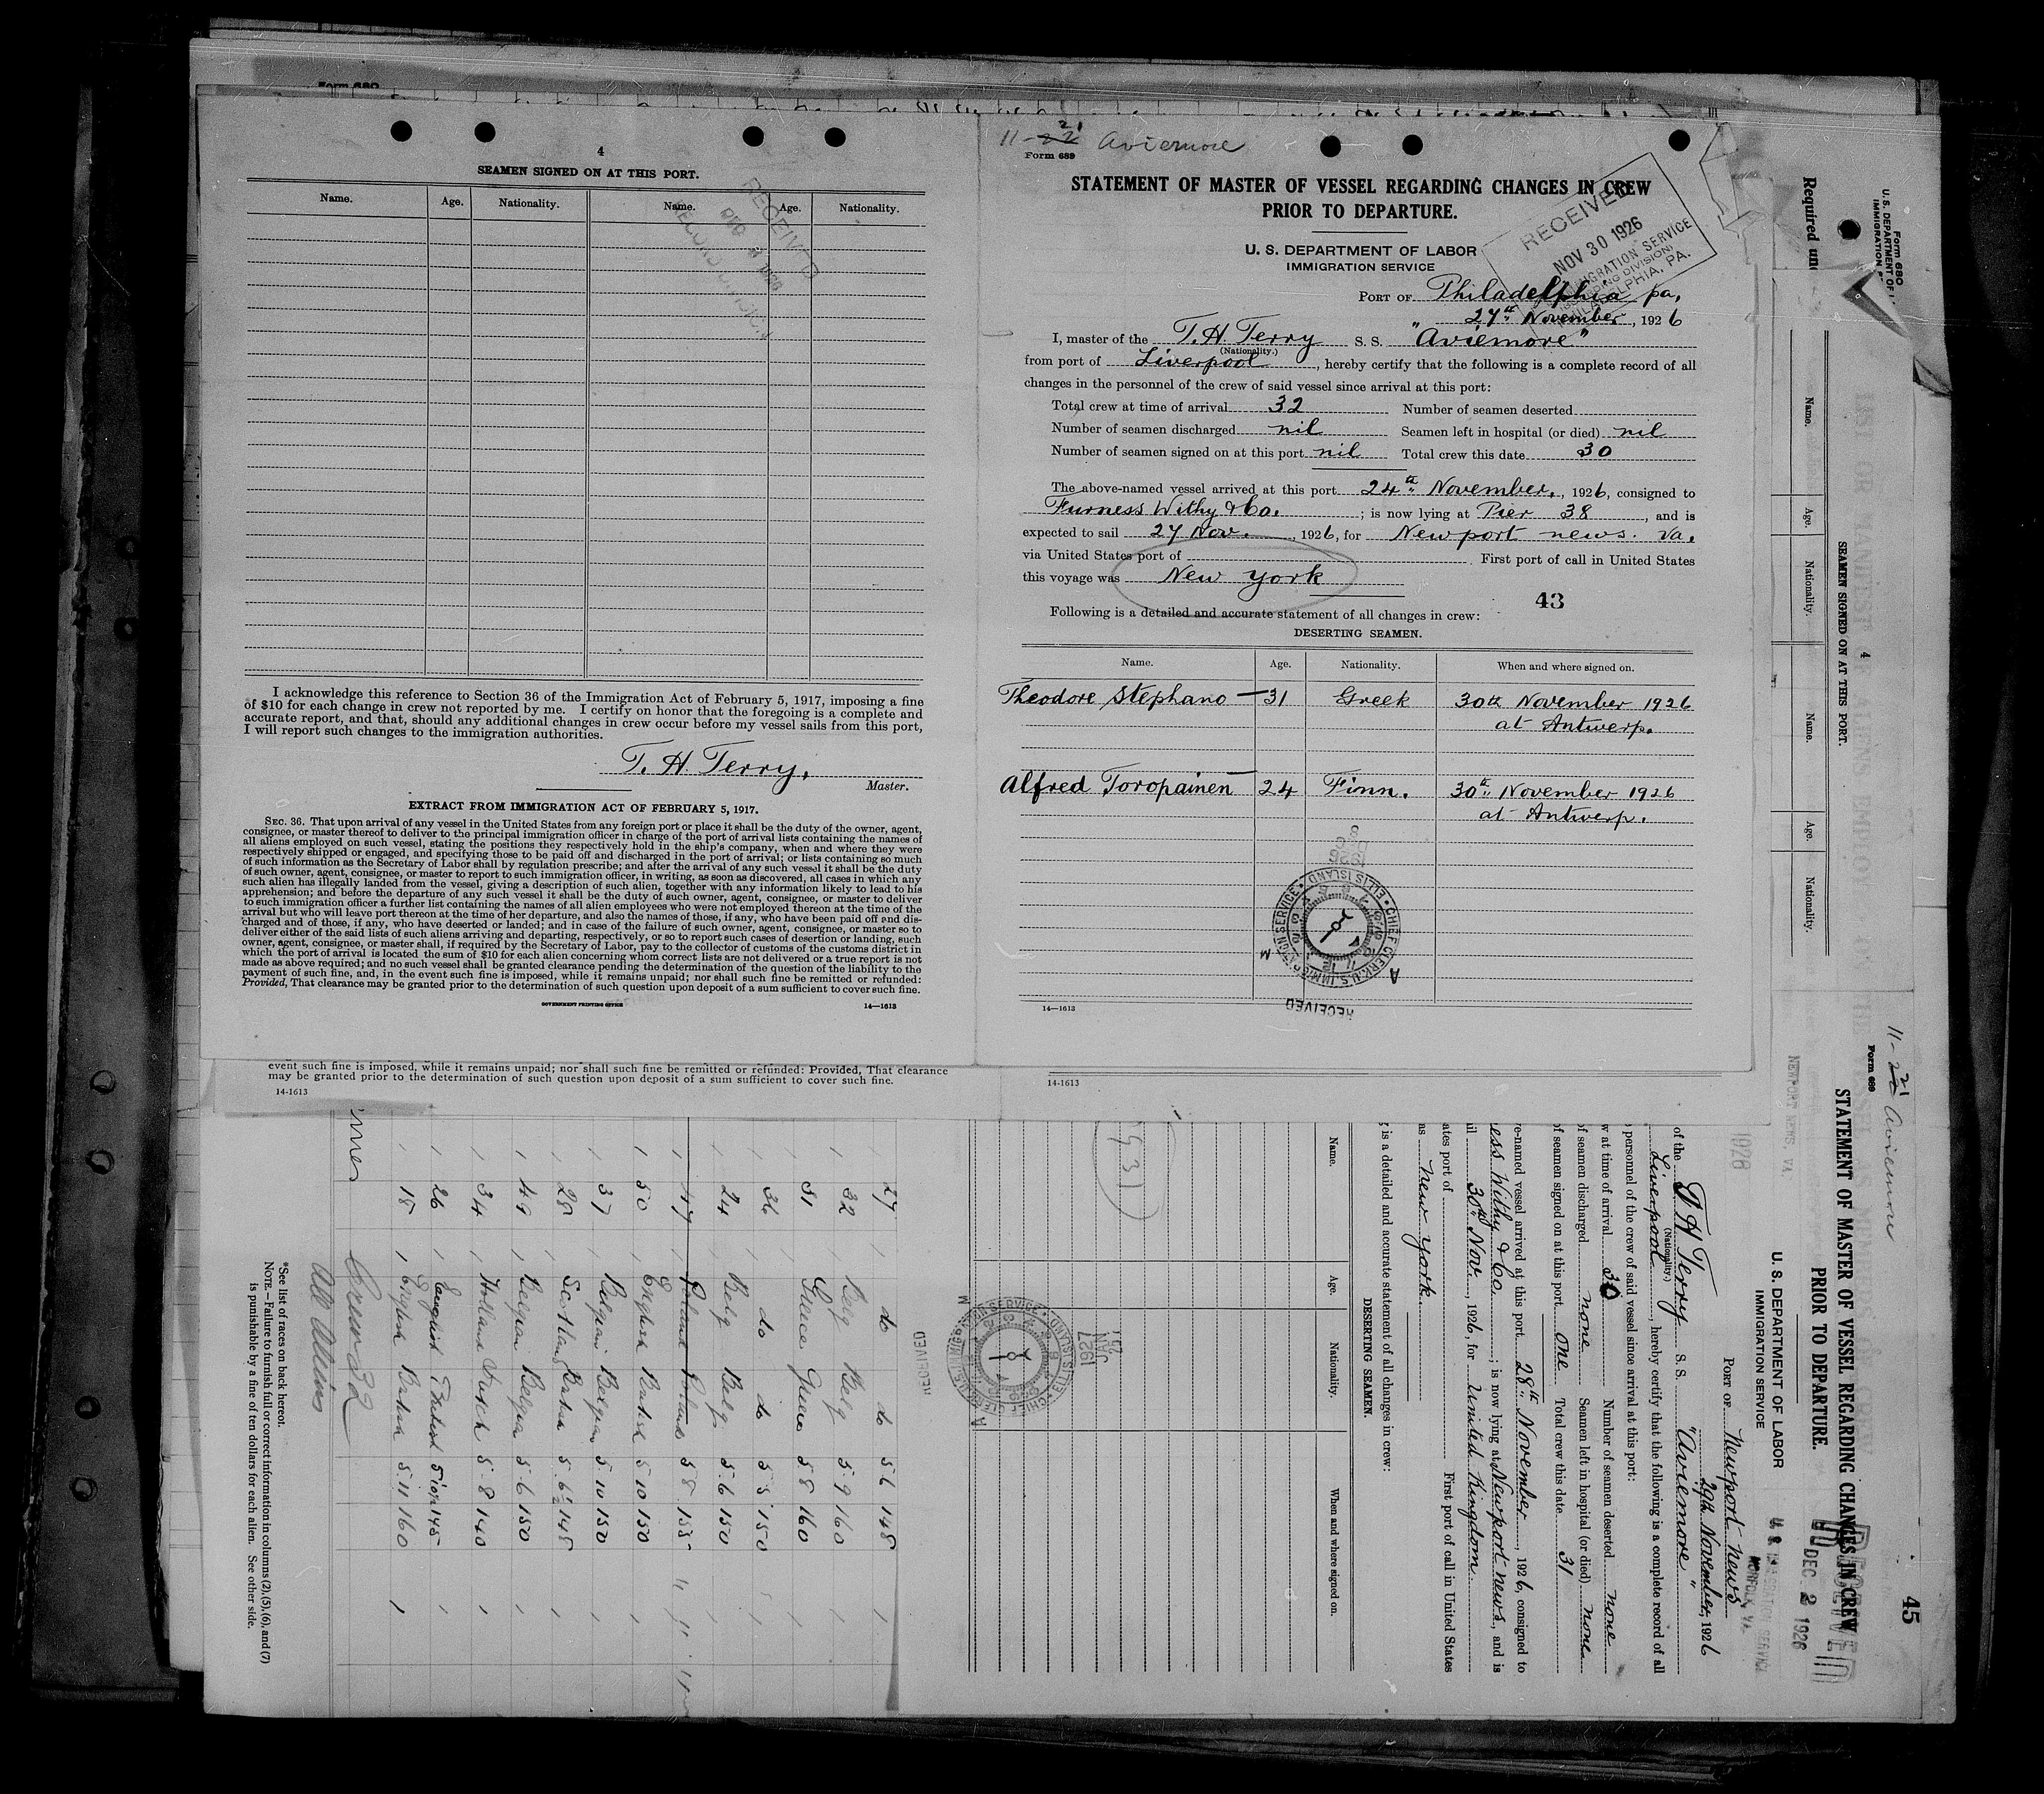 Form 680
4
SEAMEN SIGNED ON AT THIS PORT.
Name. Age. Nationality. Name. Age. Nationality.
RECEIVED
I acknowledge this reference to Section 36 of the Immigration Act of February 5, 1917, imposing a fine
of $10 for each change in crew not reported by me. I certify on honor that the foregoing is a complete and
accurate report, and that, should any additional changes in crew occur before my vessel sails from this port,
I will report such changes to the immigration authorities.
T. H. Terry,
Master.
EXTRACT FROM IMMIGRATION ACT OF FEBRUARY 5, 1917.
SEC. 36. That upon arrival of any vessel in the United States from any foreign port or place it shall be the duty of the owner, agent,
consignee, or master thereof to deliver to the principal immigration officer in charge of the port of arrival lists containing the names of
all aliens employed on such vessel, stating the positions they respectively hold in the ship's company, when and where they were
respectively shipped or engaged, and specifying those to be paid off and discharged in the port of arrival; or lists containing so much
of such information as the Secretary of Labor shall by regulation prescribe; and after the arrival of any such vessel it shall be the duty
of such owner, agent, consignee, or master to report to such immigration officer, in writing, as soon as discovered, all cases in which any
such alien has illegally landed from the vessel, giving a description of such alien, together with any information likely to lead to his
apprehension; and before the departure of any such vessel it shall be the duty of such owner, agent, consignee, or master to deliver
to such immigration officer a further list containing the names of all alien employees who were not employed thereon at the time of the
arrival but who will leave port thereon at the time of her departure, and also the names of those, if any, who have been paid off and dis-
charged and of those, if any, who have deserted or landed; and in case of the failure of such owner, agent, consignee, or master so to
deliver either of the said lists of such aliens arriving and departing, respectively, or so to report such cases of desertion or landing, such
owner, agent, consignee, or master shall, if required by the Secretary of Labor, pay to the collector of customs of the customs district in
which the port of arrival is located the sum of $10 for each alien concerning whom correct lists are not delivered or a true report is not
made as above required; and no such vessel shall be granted clearance pending the determination of the question of the liability to the
payment of such fine, and, in the event such fine is imposed, while it remains unpaid; nor shall such fine be remitted or refunded:
Provided, That clearance may be granted prior to the determination of such question upon deposit of a sum sufficient to cover such fine.
GOVERNMENT PRINTING OFFICE 14—1613
11-22 21 Aviemore
Form 689
STATEMENT OF MASTER OF VESSEL REGARDING CHANGES IN CREW
PRIOR TO DEPARTURE.
U. S. DEPARTMENT OF LABOR
IMMIGRATION SERVICE
RECEIVED
NOV 30 1926
IMMIGRATION SERVICE
PHILADELPHIA, PA.
PORT OF Philadelphia pa.
27th November, 1926
I, master of the T. H. Terry S. S. "Aviemore"
(Nationality.)
from port of Liverpool, hereby certify that the following is a complete record of all
changes in the personnel of the crew of said vessel since arrival at this port:
Total crew at time of arrival 32 Number of seamen deserted
Number of seamen discharged nil Seamen left in hospital (or died) nil
Number of seamen signed on at this port nil Total crew this date 30
The above-named vessel arrived at this port 24th November, 1926, consigned to
Furness Withy & Co. ; is now lying at Pier 38, and is
expected to sail 27 Nov. 1926, for Newport news. Va.
via United States port of First port of call in United States
this voyage was New York
43
Following is a detailed and accurate statement of all changes in crew:
DESERTING SEAMEN.
Name. Age. Nationality. When and where signed on.
Theodore Stephano — 31 Greek 30th November 1926
at Antwerp.
Alfred Toropainen 24 Finn. 30th November 1926
at Antwerp.
CHIEF CLERK U.S. IMMIGRATION SERVICE ELLIS ISLAND
RECEIVED
14—1613
event such fine is imposed, while it remains unpaid; nor shall such fine be remitted or refunded: Provided, That clearance
may be granted prior to the determination of such question upon deposit of a sum sufficient to cover such fine.
14-1613
14-1613
Form 680
U. S. DEPARTMENT OF
IMMIGRATION
Required und
4
SEAMEN SIGNED ON AT THIS PORT.
Name. Age. Nationality. Name. Age. Nationality.
45
11-22 21 Aviemore
Form 689
STATEMENT OF MASTER OF VESSEL REGARDING CHANGES IN CREW
PRIOR TO DEPARTURE.
U. S. DEPARTMENT OF LABOR
IMMIGRATION SERVICE
RECEIVED
DEC 2 1926
NORFOLK, VA.
NEWPORT NEWS, VA.
PORT OF Newport news
29th November, 1926
of the T H Terry S. S. "Aviemore"
(Nationality.)
Liverpool, hereby certify that the following is a complete record of all
personnel of the crew of said vessel since arrival at this port:
w at time of arrival 30 Number of seamen deserted none
of seamen discharged none Seamen left in hospital (or died) none
of seamen signed on at this port one Total crew this date 31
re-named vessel arrived at this port 28th November, 1926, consigned to
ess Withy & Co. ; is now lying at Newport news, and is
il 30th Nov., 1926, for United Kingdom.
ates port of First port of call in United States
as New York.
g is a detailed and accurate statement of all changes in crew:
DESERTING SEAMEN.
Name. Age. Nationality. When and where signed on.
(31)
RECEIVED
27 do do 5 6 148
32 Belg Belg 5 9 160
31 Greece Greece 5 8 160
36 do do 5 5 150
24 Belg Belg. 5.6 150
47 Poland Poland 5 8 155
50 English British 5 10 150
37 Belgian Belgian 5 10 150
28 Scotland British 5.6½ 148
49 Belgian Belgian 5-6 150
34 Holland Dutch 5-8 140
26 English British 5'10½ 145
18 English British 5.11 160
Crew 32
All Aliens
*See list of races on back hereof.
NOTE.—Failure to furnish full or correct information in columns (2), (5), (6), and (7)
is punishable by a fine of ten dollars for each alien. See other side.